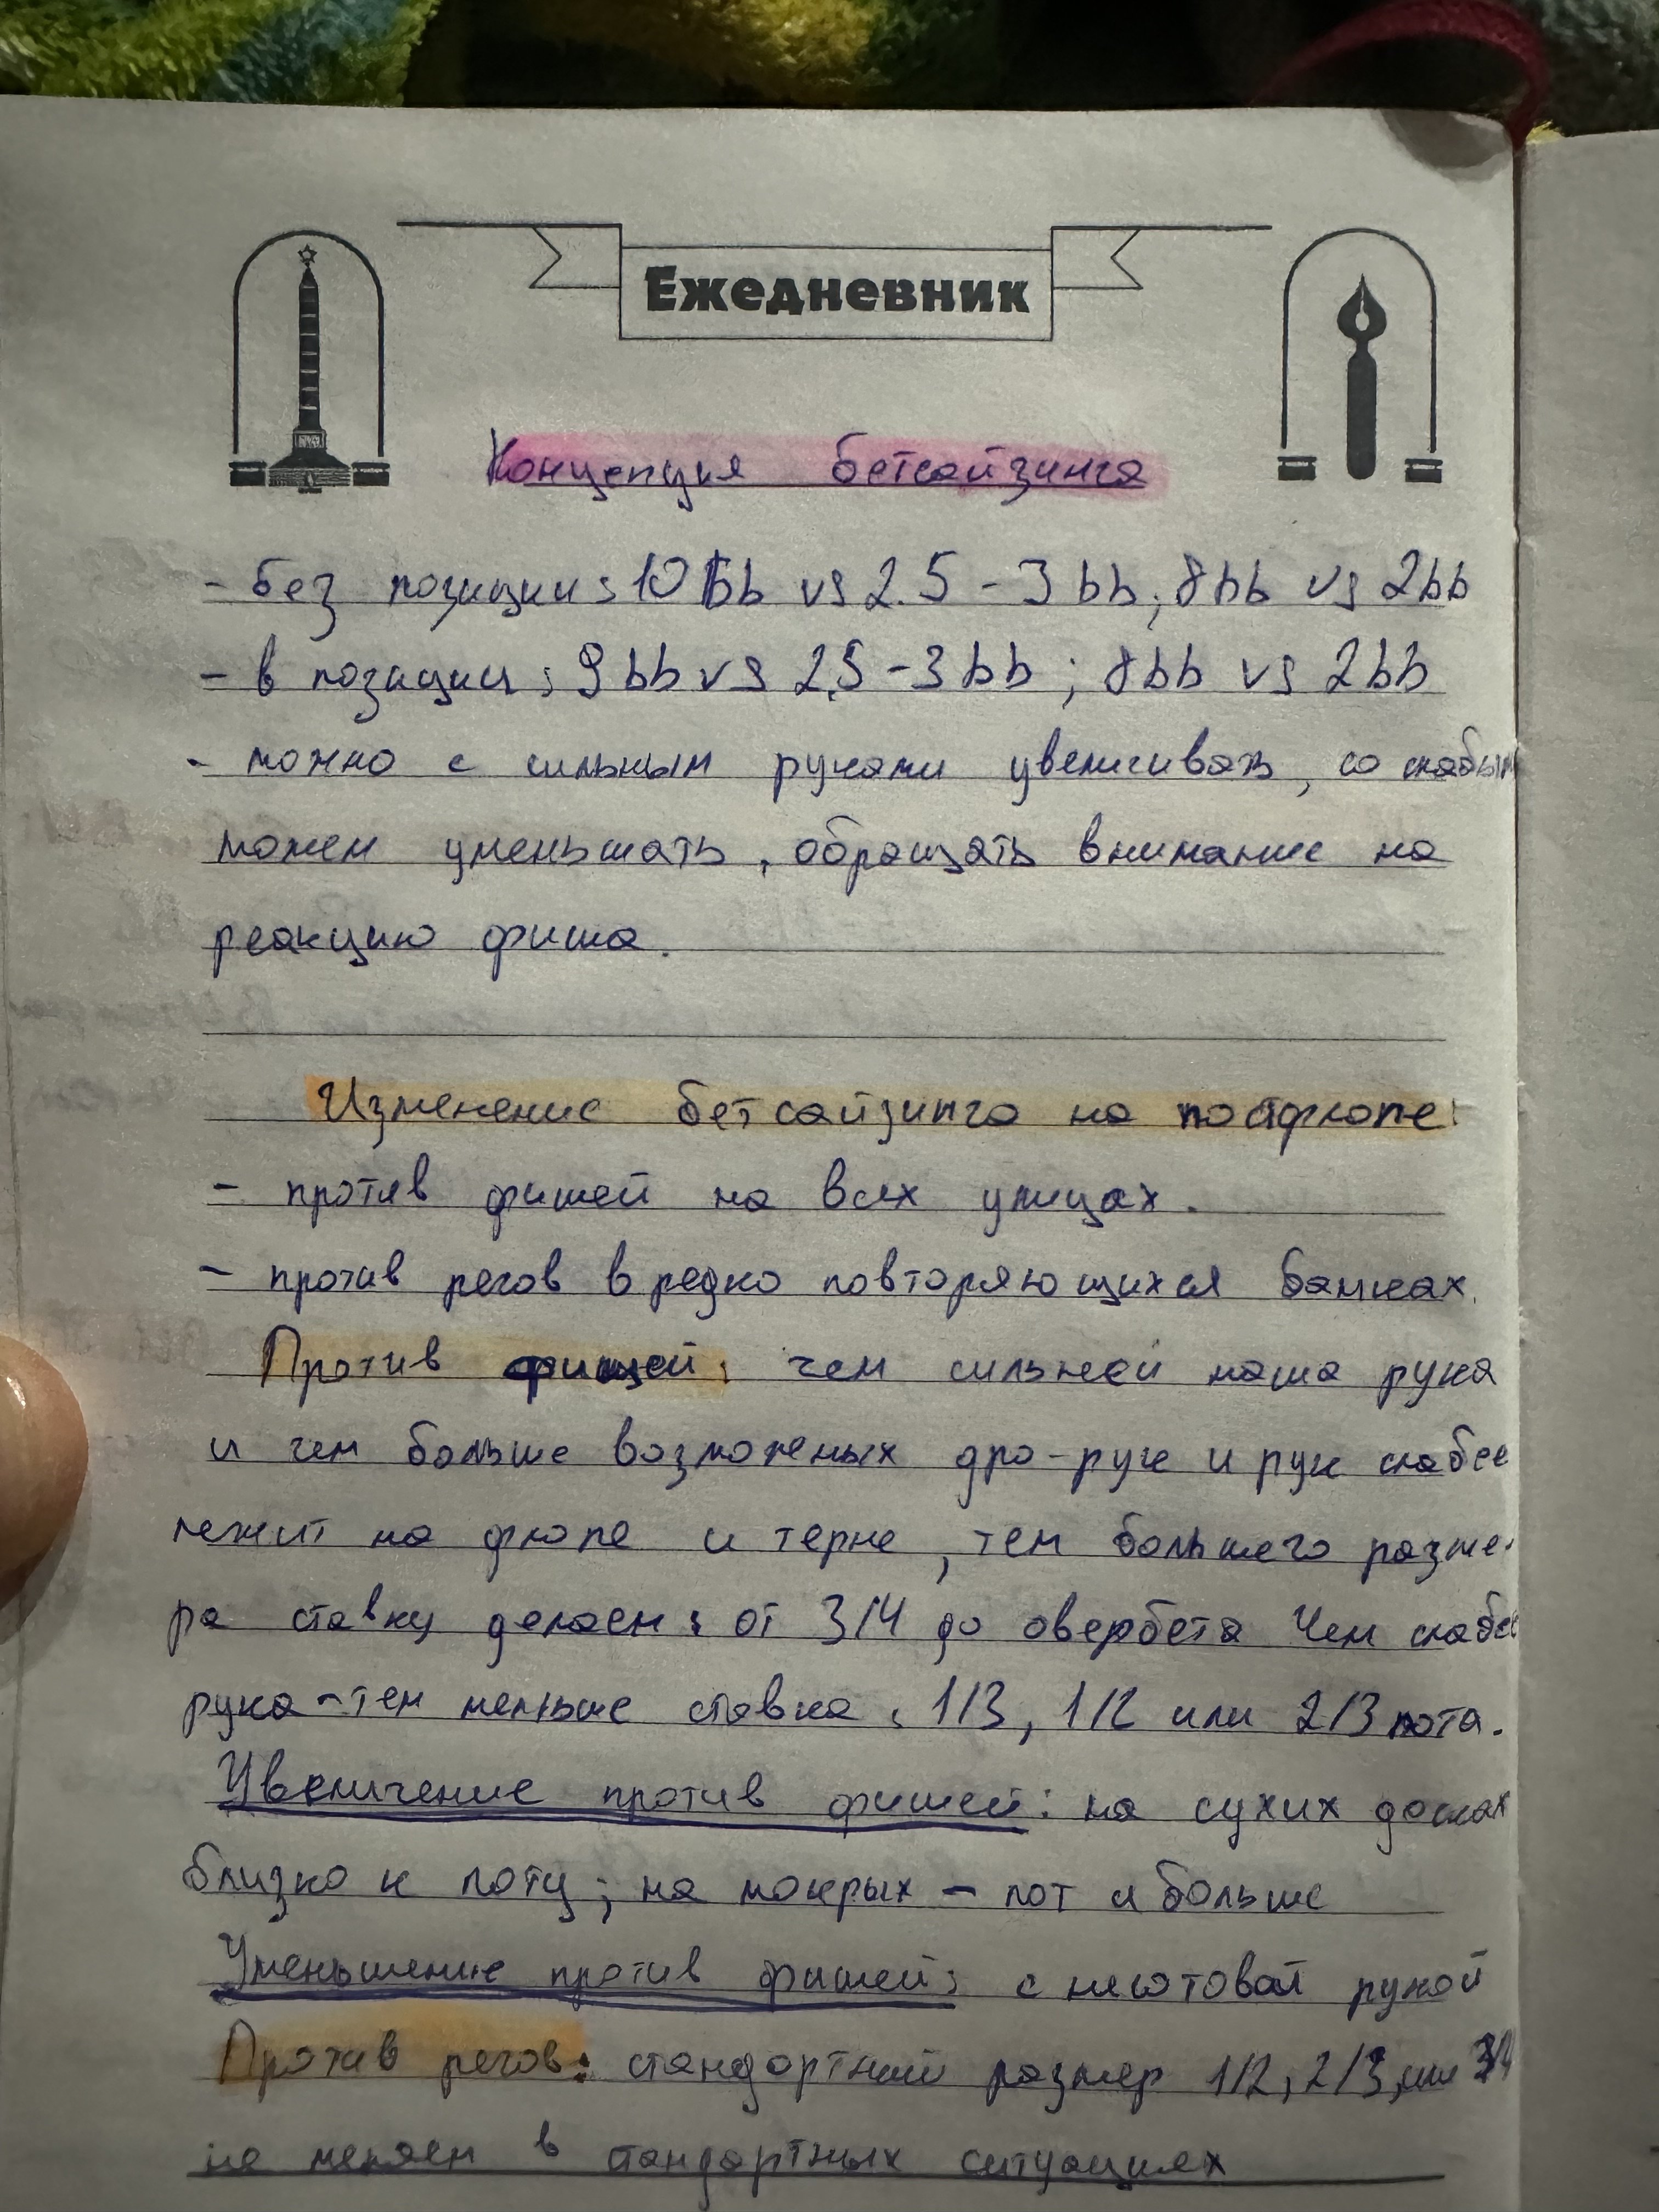 Ежедневник
Концепция бетсайзинга
- без позиции: 10 bb vs 2.5 - 3 bb; 8bb vs 2bb
- в позиции: 9 bb vs 2.5 - 3 bb; 8bb vs 2bb
- можно с сильным руками увеличивать, со слабым
можем уменьшать, обращать внимание на
реакцию фиша.
Изменение бетсайзинга на постфлопе:
- против фишей на всех улицах.
- против регов в редко повторяющихся банках.
Против фишей: чем сильней наша рука
и чем больше возможных дро-рук и рук слабее
лежит на флопе и терне, тем большего разме-
ра ставку делаем: от 3/4 до овербета Чем слабее
рука - тем меньше ставка: 1/3, 1/2 или 2/3 пота.
Увеличение против фишей: на сухих досках
близко к поту; на мокрых - пот и больше
Уменьшение против фишей: с неготовой рукой
Против регов: стандартный размер 1/2, 2/3, или 3/4
не меняем в стандартных ситуациях